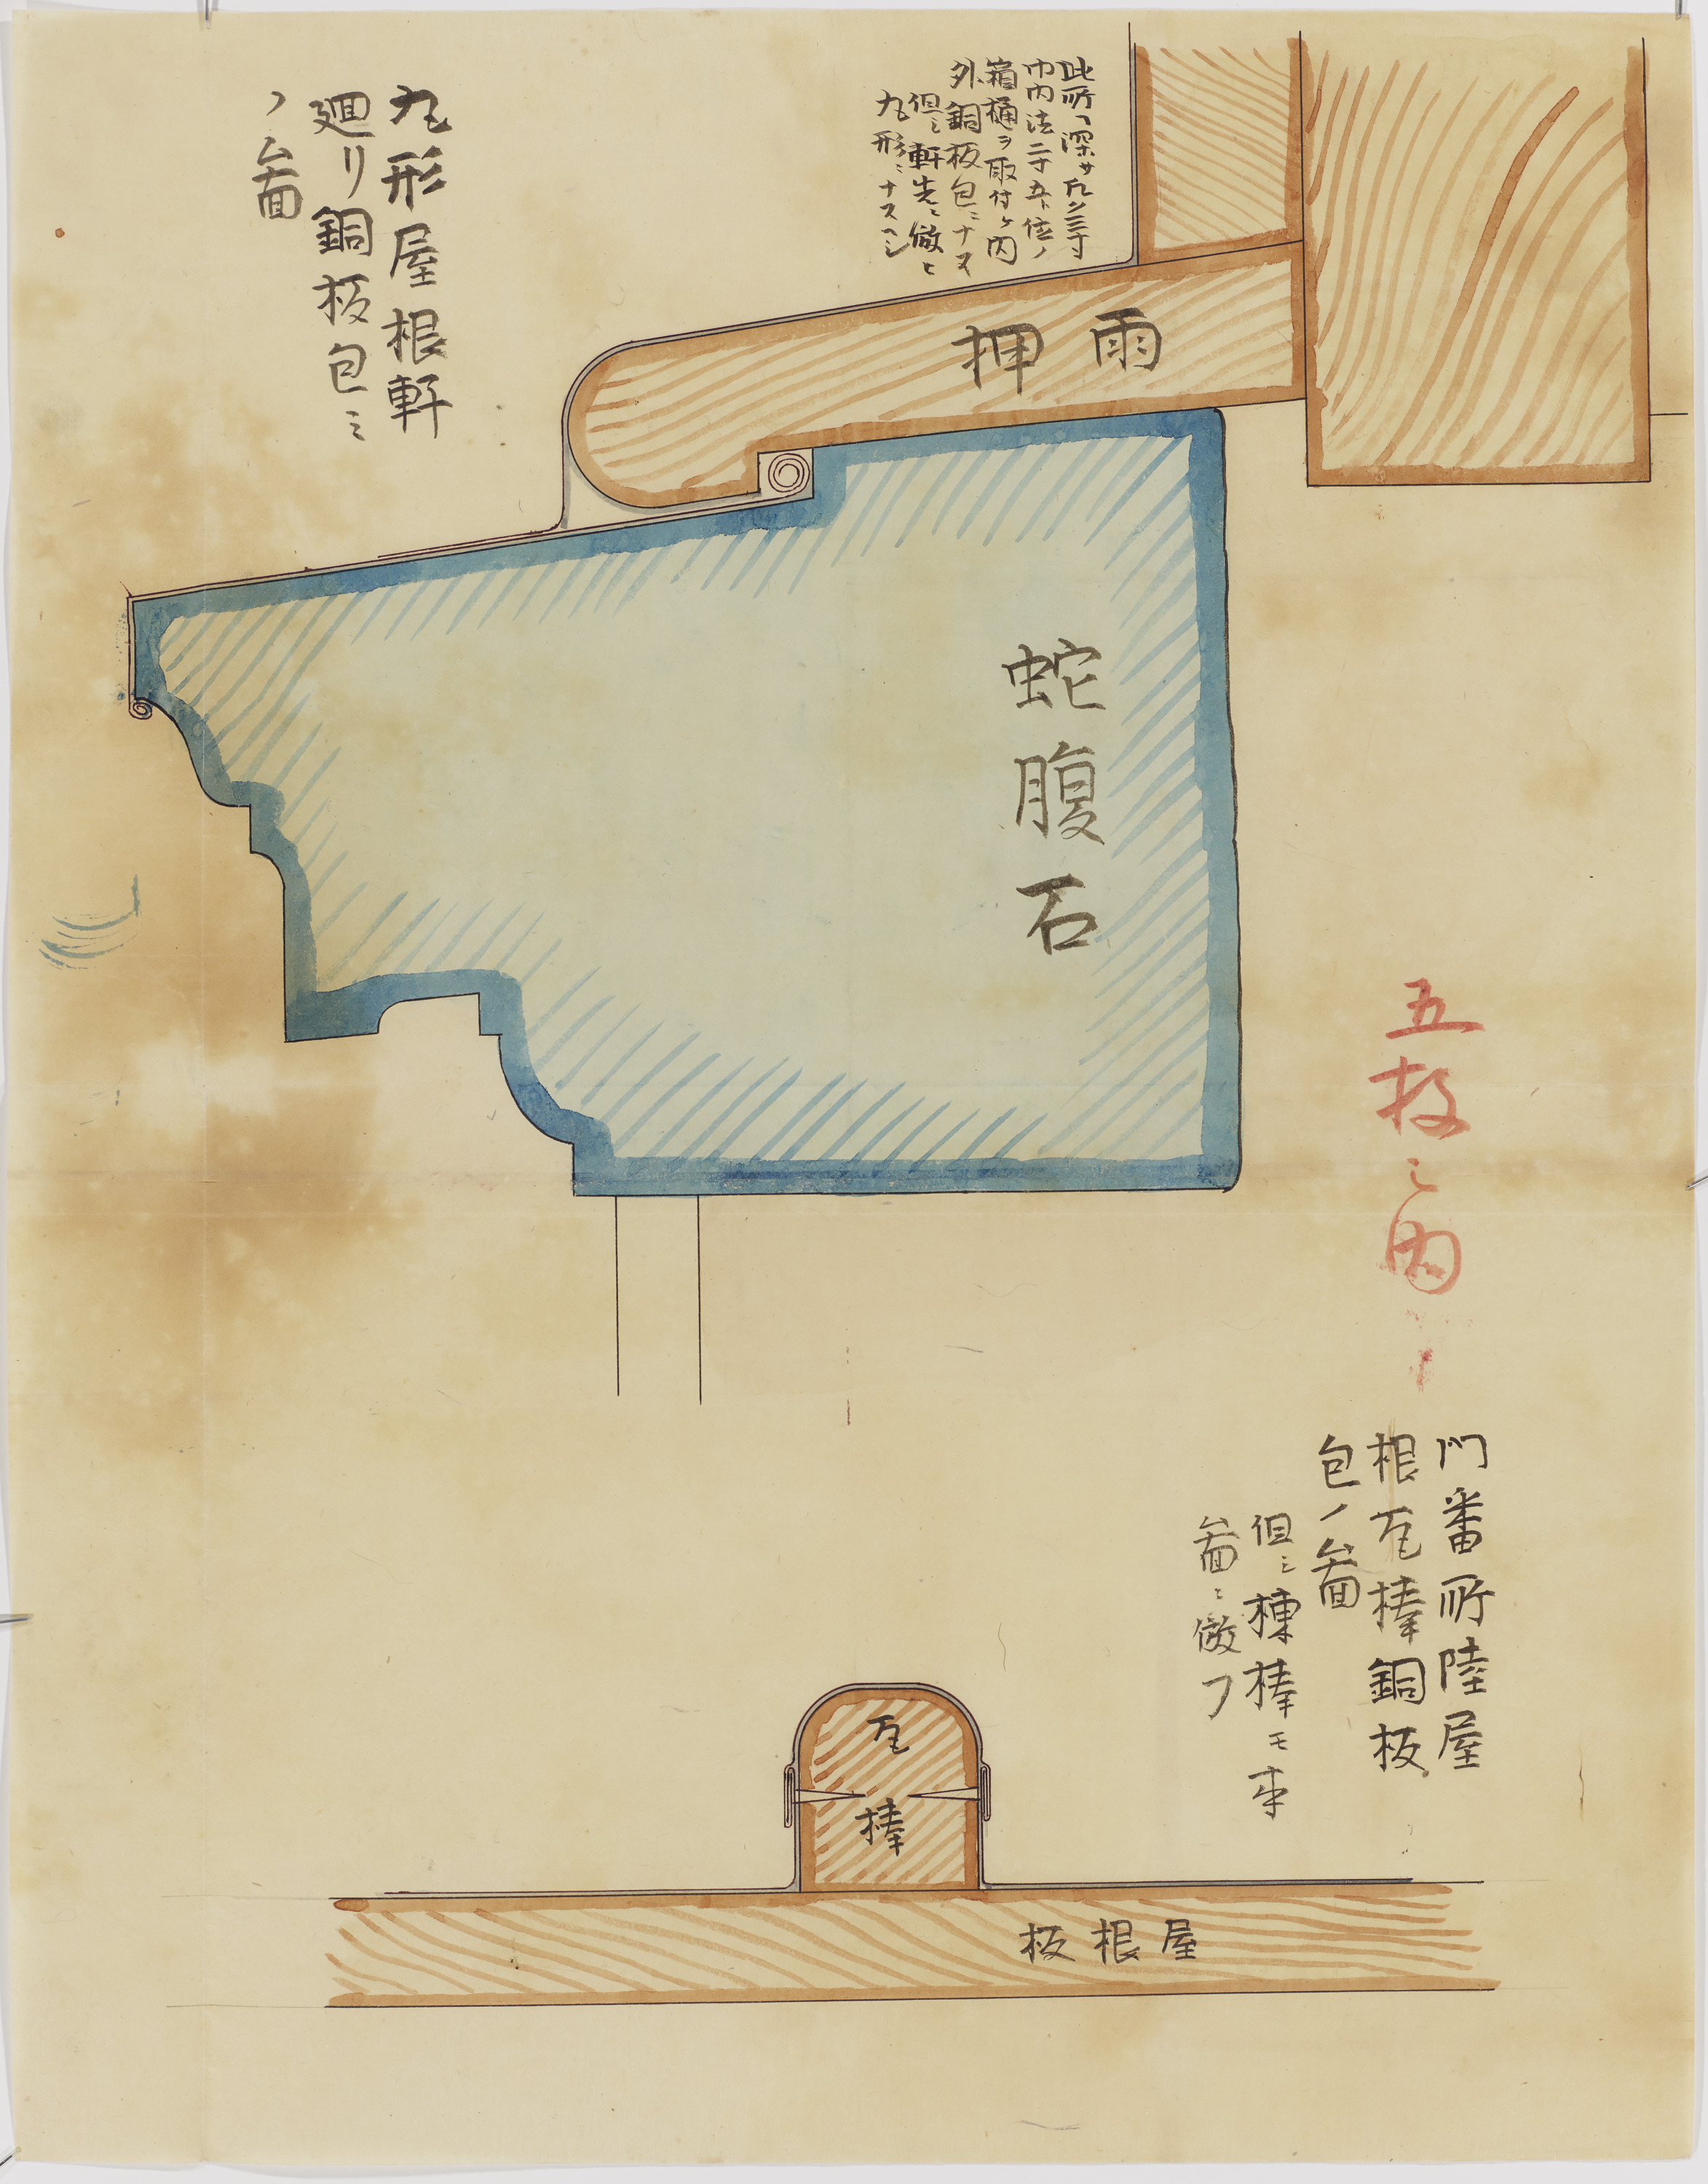 此所ヘ深サ凡ソ三寸
巾内法二寸五分位ノ
箱樋ヲ取付ケ内
外銅板包ニナス
但シ軒先ニ倣ヒ
丸形ニナスヘシ
丸形屋根軒
廻リ銅板包ミ
ノ啚
雨押
蛇腹石
五枚之内
門番所陸屋
根瓦棒銅板
包ノ啚
但シ棟棒モ本
啚ニ倣フ
瓦棒
屋根板